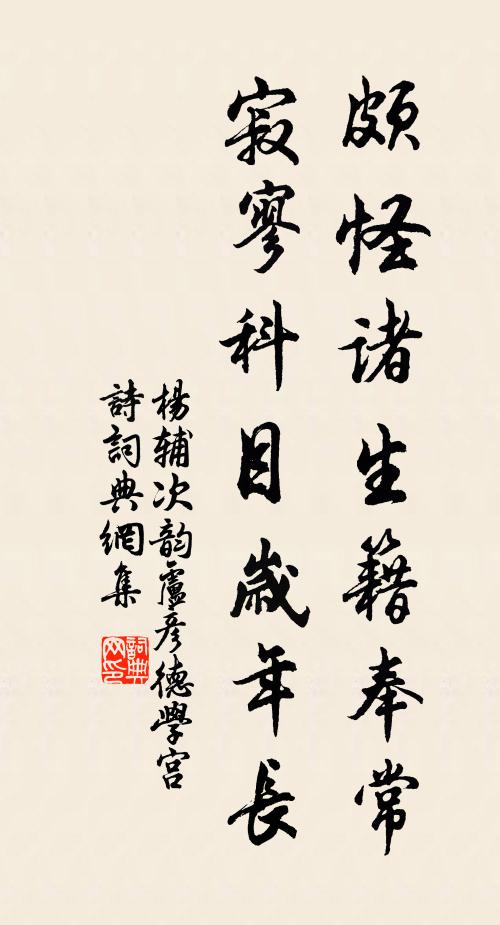 頗怪諸生籍奉常
寂寥科目歲年長
楊輔次韵盧彥德學宮
詩詞典網集
詞典網印